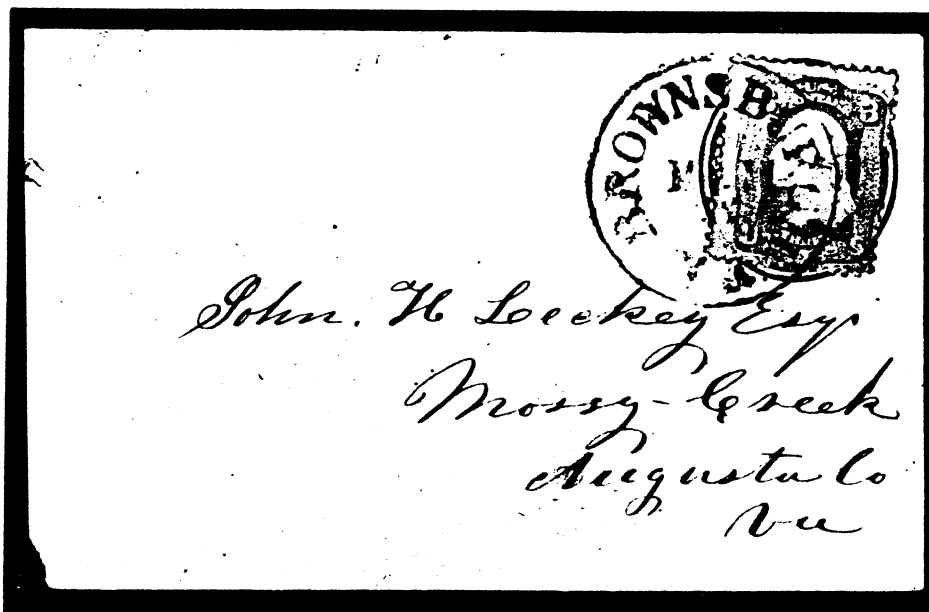 BROWNSB
John. H Leckey Esq
Mossy-Creek
Augusta Co
Va